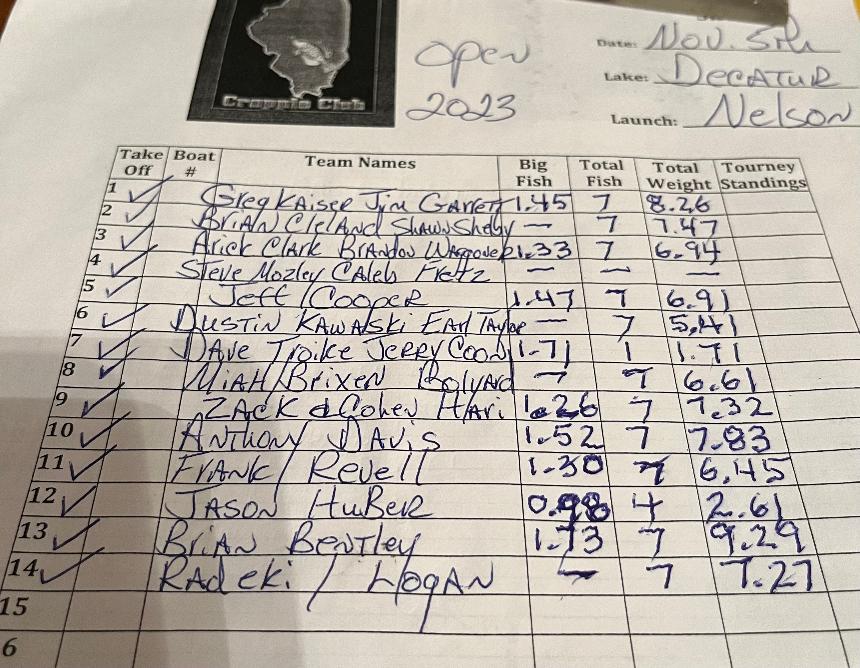 Crappie Club
Open
2023
Date: Nov. 5th
Lake: Decatur
Launch: Nelson
Take Off Boat # Team Names Big Fish Total Fish Total Weight Tourney Standings
1 Greg Kaiser Jim Garrett 1.45 7 8.26
2 Brian Cleland Shawn Shelby — 7 7.47
3 Arick Clark Brandon Waggoner 1.33 7 6.94
4 Steve Mozley Caleb Fretz — — —
5 Jeff / Cooper 1.47 7 6.91
6 Dustin Kawalski Earl Taylor — 7 5.41
7 Dave Troike Jerry Coon 1.71 1 1.71
8 Miah/Brixen Bolyard — 7 6.61
9 Zack & Cohen Hari 1.26 7 7.32
10 Anthony Davis 1.52 7 7.83
11 Frank / Revell 1.30 7 6.45
12 Jason Huber 0.98 4 2.61
13 Brian Bentley 1.73 7 9.29
14 Radeki / Hogan — 7 7.27
15
6